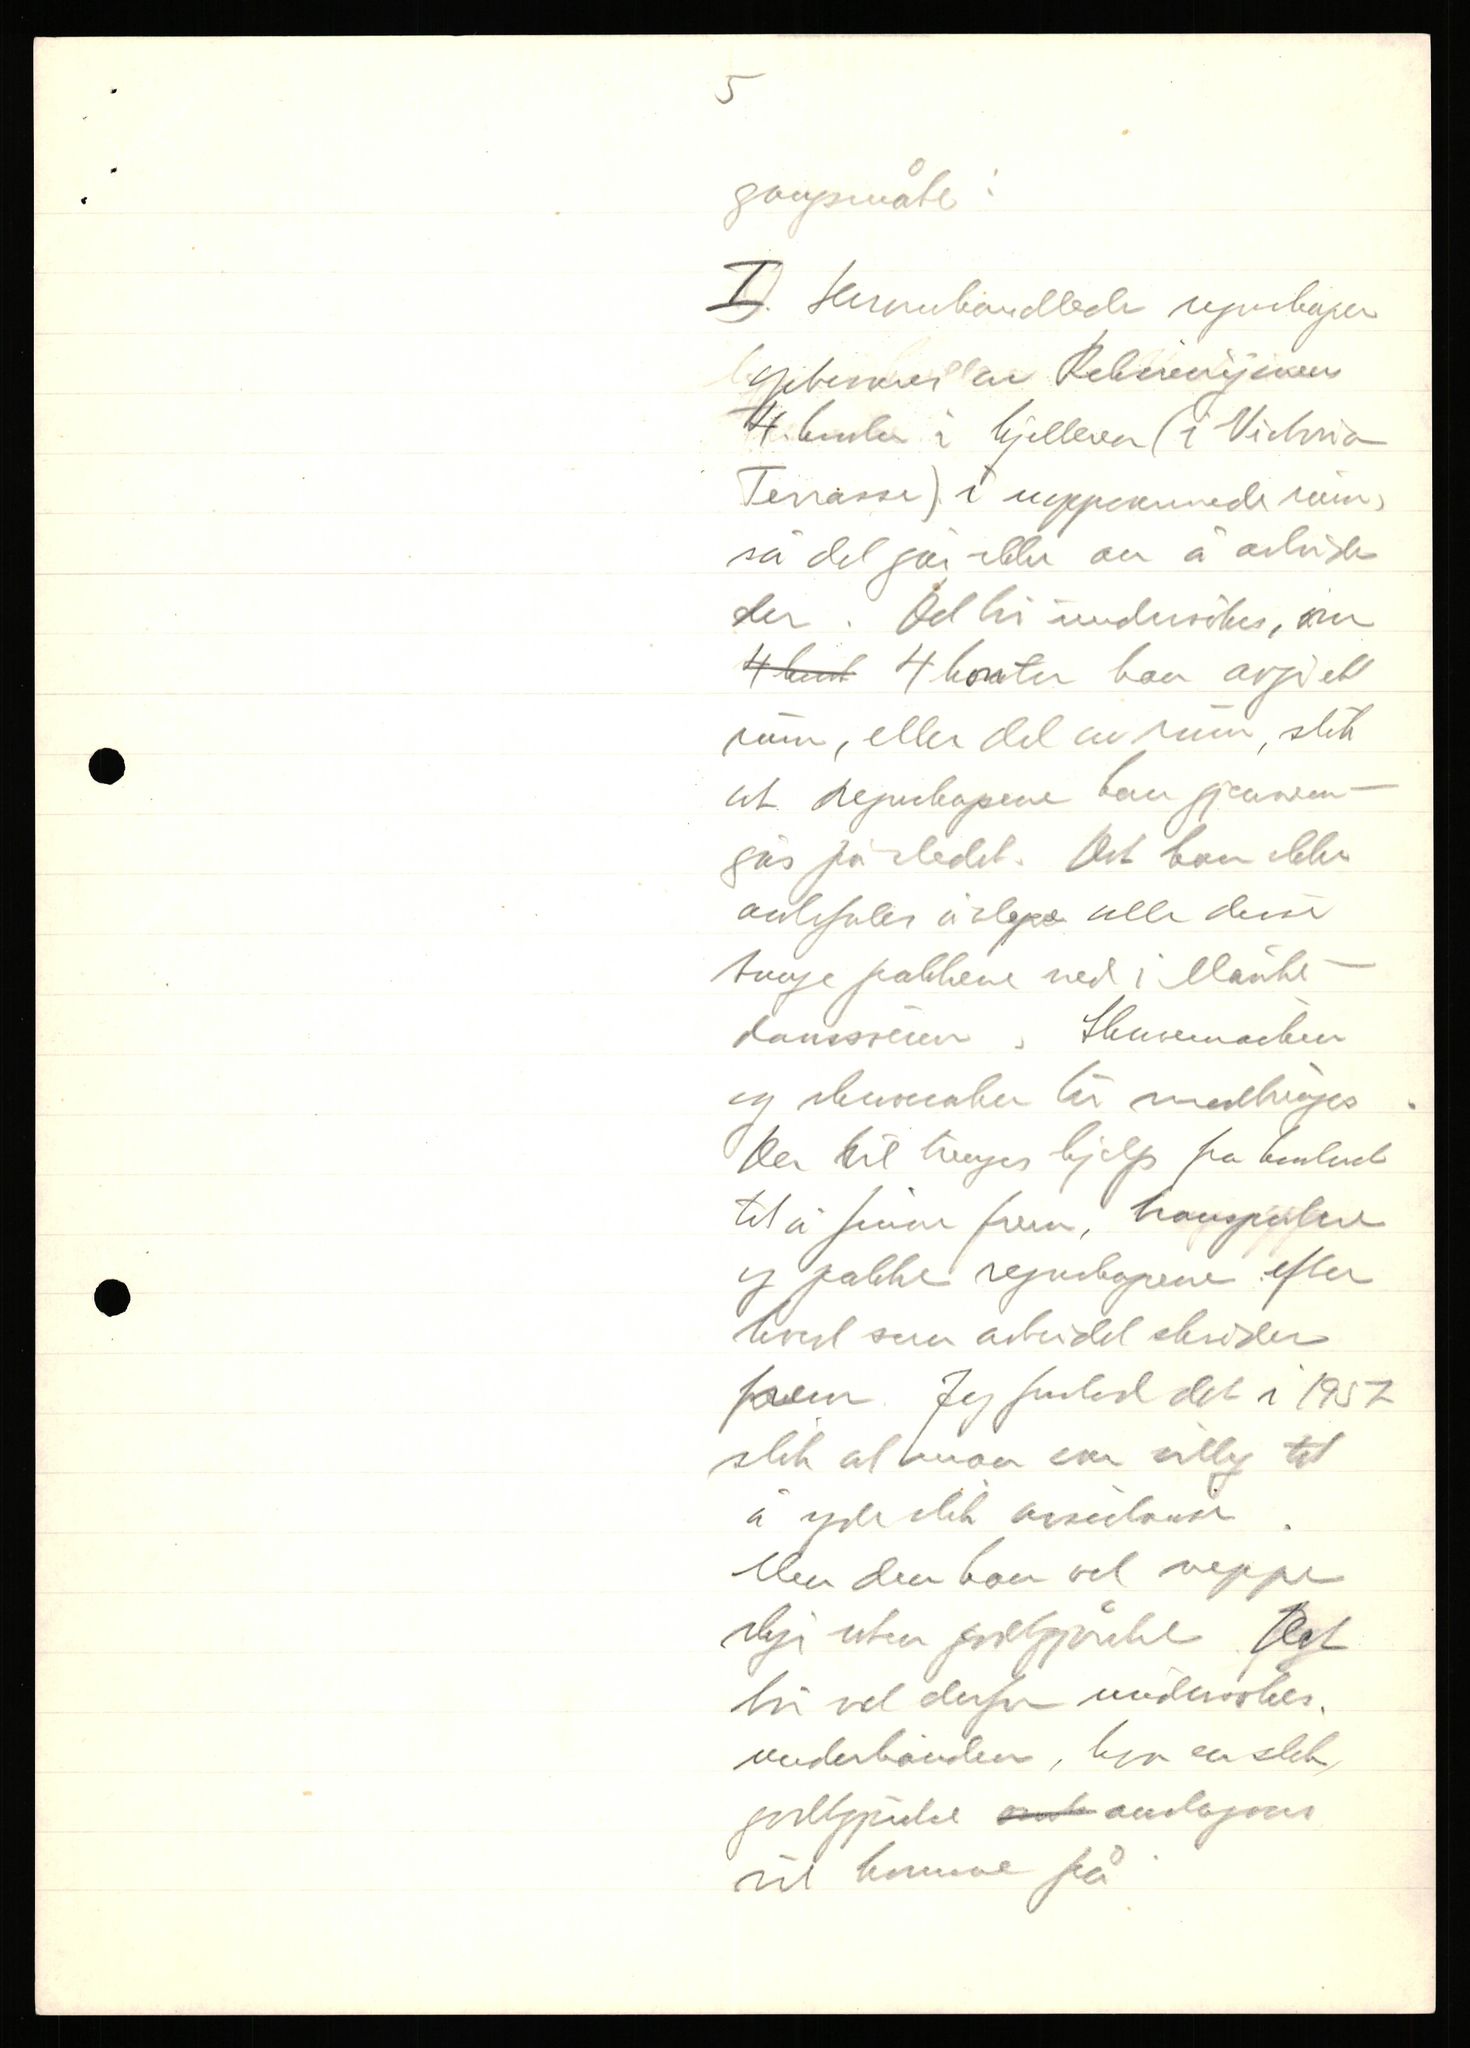 5
gangsmåte:
I). regnskaper
av Revisjonens
4. kontor i kjelleren (i Victoria
Terrasse) i uoppvarmede rum,
så det går ikke an å arbeide
der. Det bör undersökes, om
4 kont 4 kontor kan avgi et
rum, eller del av rum, slik
at regnskapene kan gjennem-
gås på stedet. Det kan ikke
anbefales å slepe alle disse
tunge pakkene ned i Munke-
damsveien. Skrivemaskin
og skrivesaker bör medbringes.
Der vil trenges hjelp fra kontoret
til å finne frem, transportere
og pakke regnskapene efter
hvert som arbeidet skrider
frem. Jeg forstod det i 1957
slik at man var villig til
å yde slik assistanse.
Men den kan vel neppe
skje uten godtgjörelse. Det
bör vel derfor undersökes
underhånden, hva en slik
godtgjörelse anslagsvis
vil komme på.